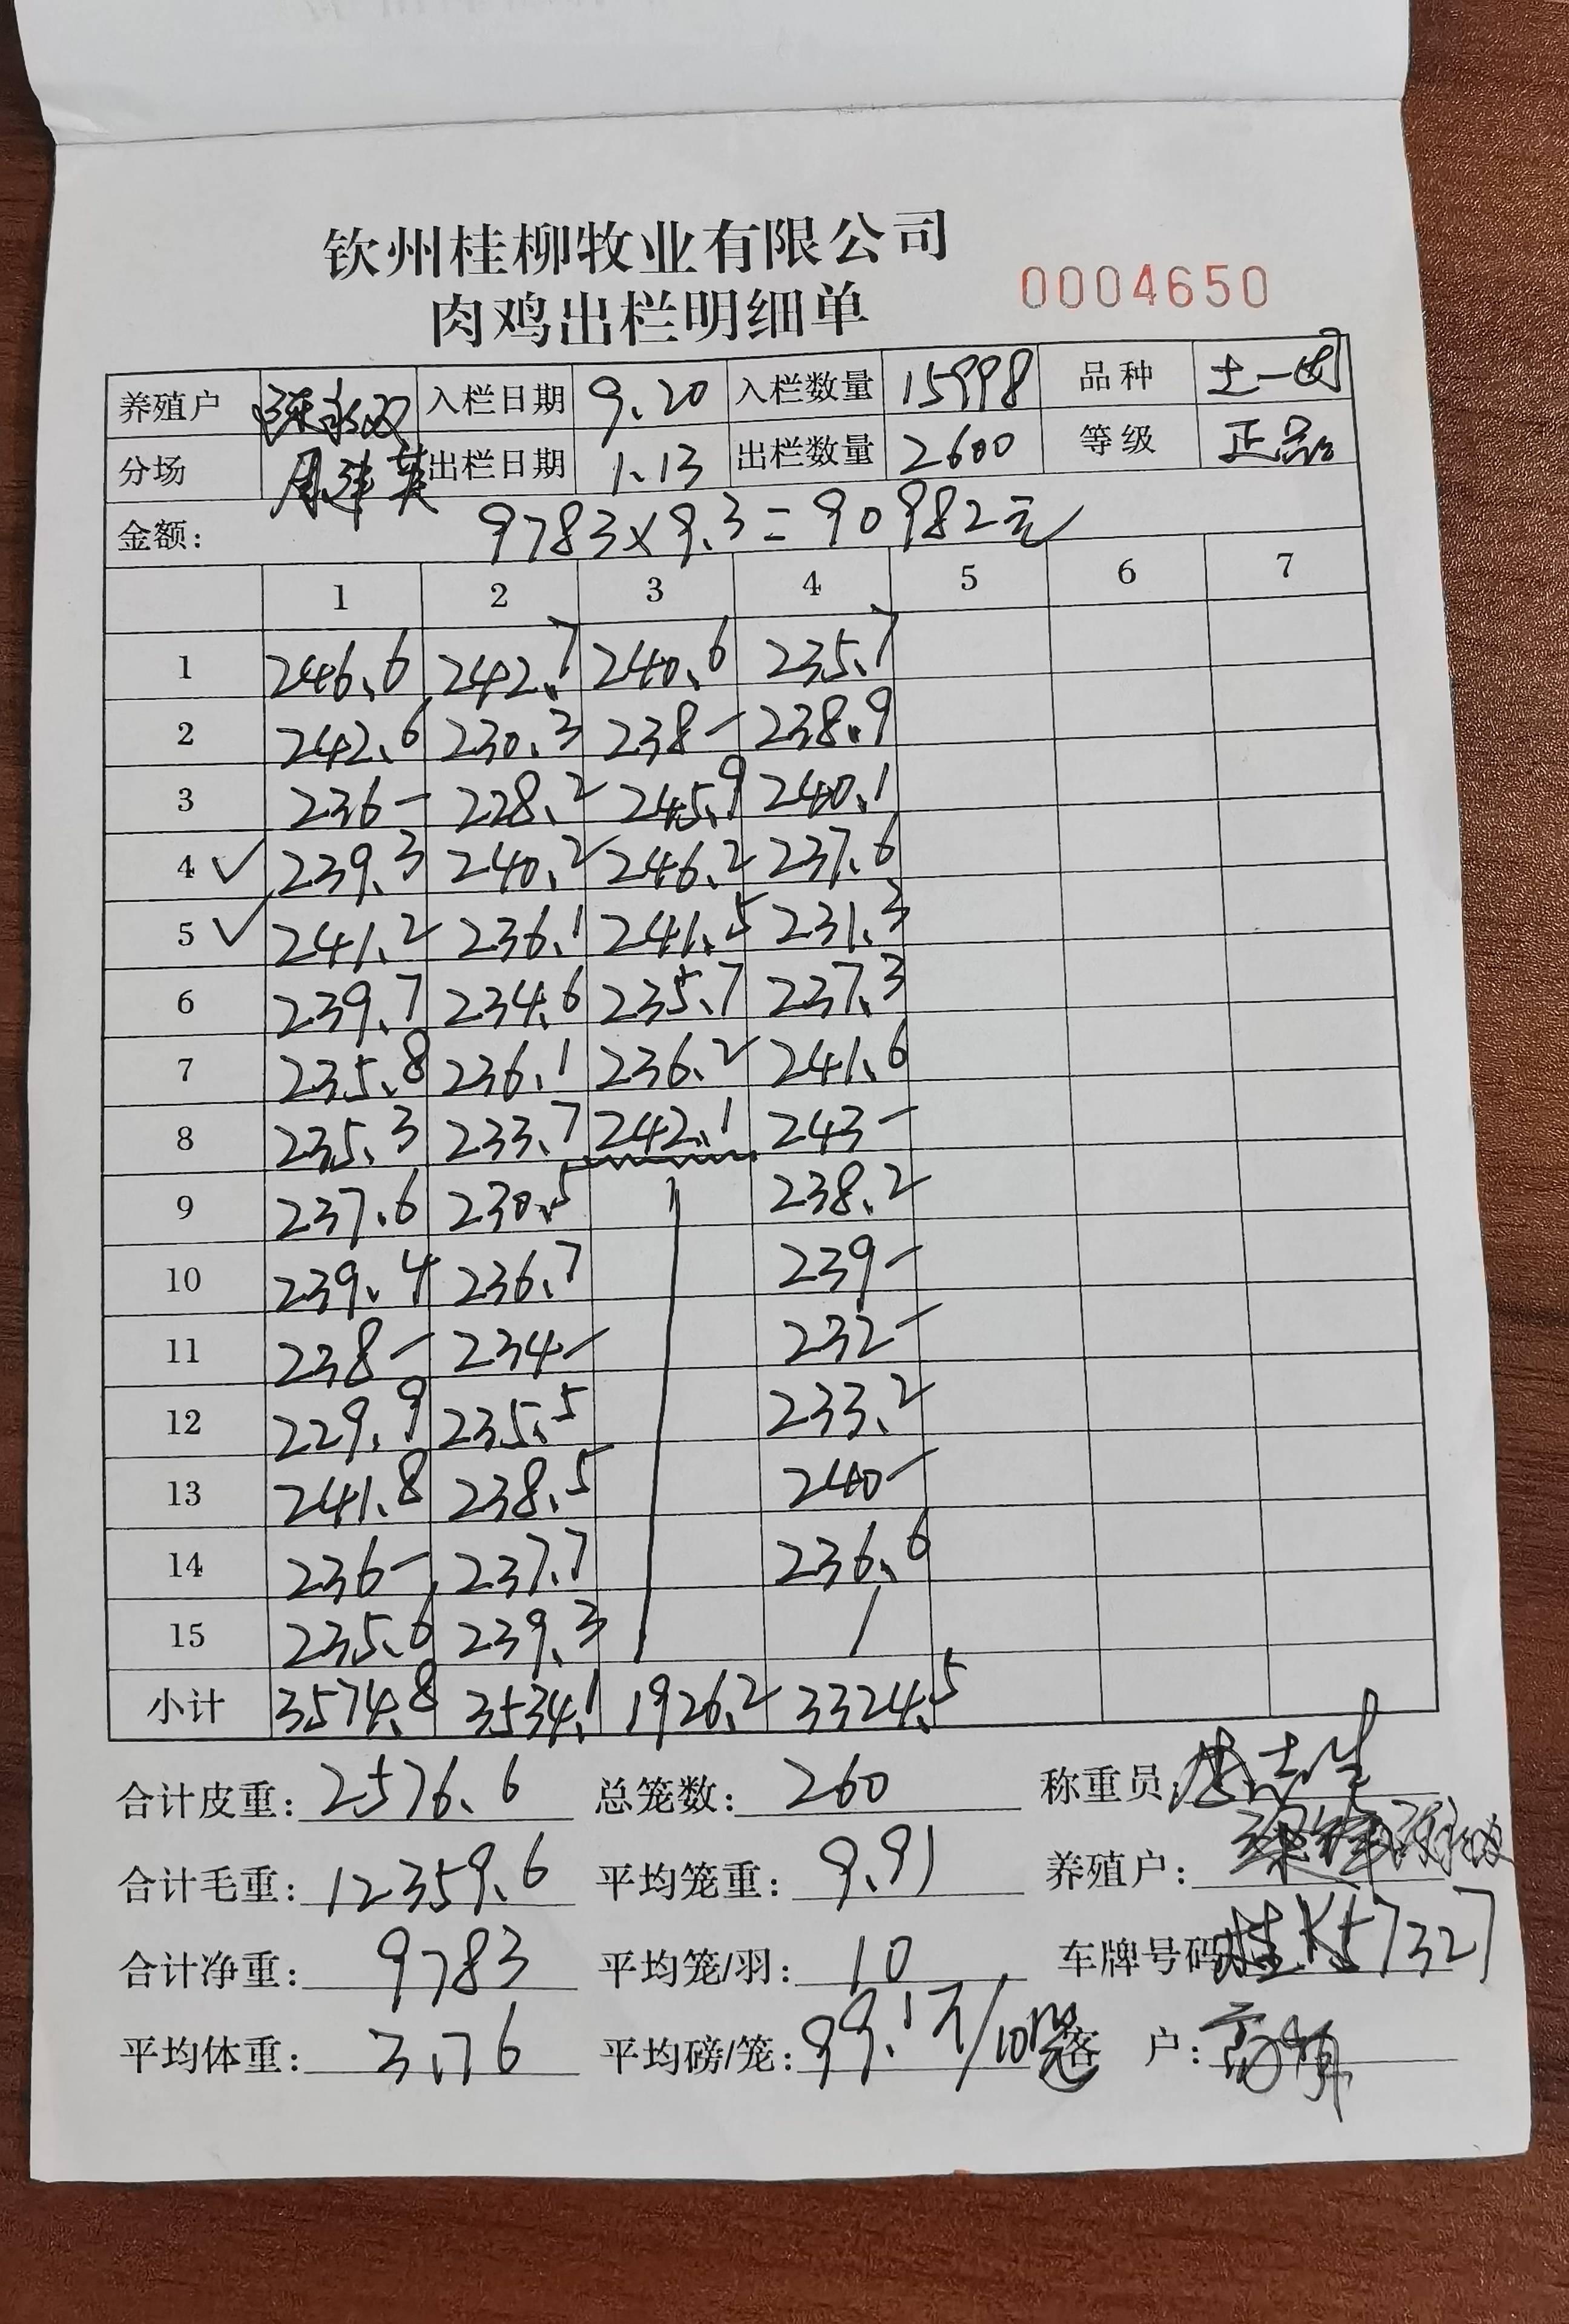 钦州桂柳牧业有限公司
肉鸡出栏明细单 0004650
养殖户 入栏日期 9.20 入栏数量 15998 品种 土一
分场 出栏日期 1.13 出栏数量 2600 等级 正品
金额: 9783×9.3=90982元
1 2 3 4 5 6 7
1 246.6 242.7 240.6 235.7
2 242.6 230.3 238- 238.9
3 236- 228.2 245.9 240.1
4 ✓ 239.3 240.2 246.2 237.6
5 ✓ 241.2 236.1 241.5 231.3
6 239.7 234.6 235.7 237.3
7 235.8 236.1 236.2 241.6
8 235.3 233.7 242.1 243-
9 237.6 230.5 238.2
10 239.4 236.7 239-
11 238- 234- 232-
12 229.9 235.5 233.2
13 241.8 238.5 240-
14 236- 237.7 236.6
15 235.6 239.3
小计 3574.8 3534.1 1926.2 3324.5
合计皮重: 2576.6 总笼数: 260 称重员:
合计毛重: 12359.6 平均笼重: 9.91 养殖户:
合计净重: 9783 平均笼/羽: 10 车牌号码: 桂K57327
平均体重: 3.76 平均磅/笼: 99.1斤/10 客 户: